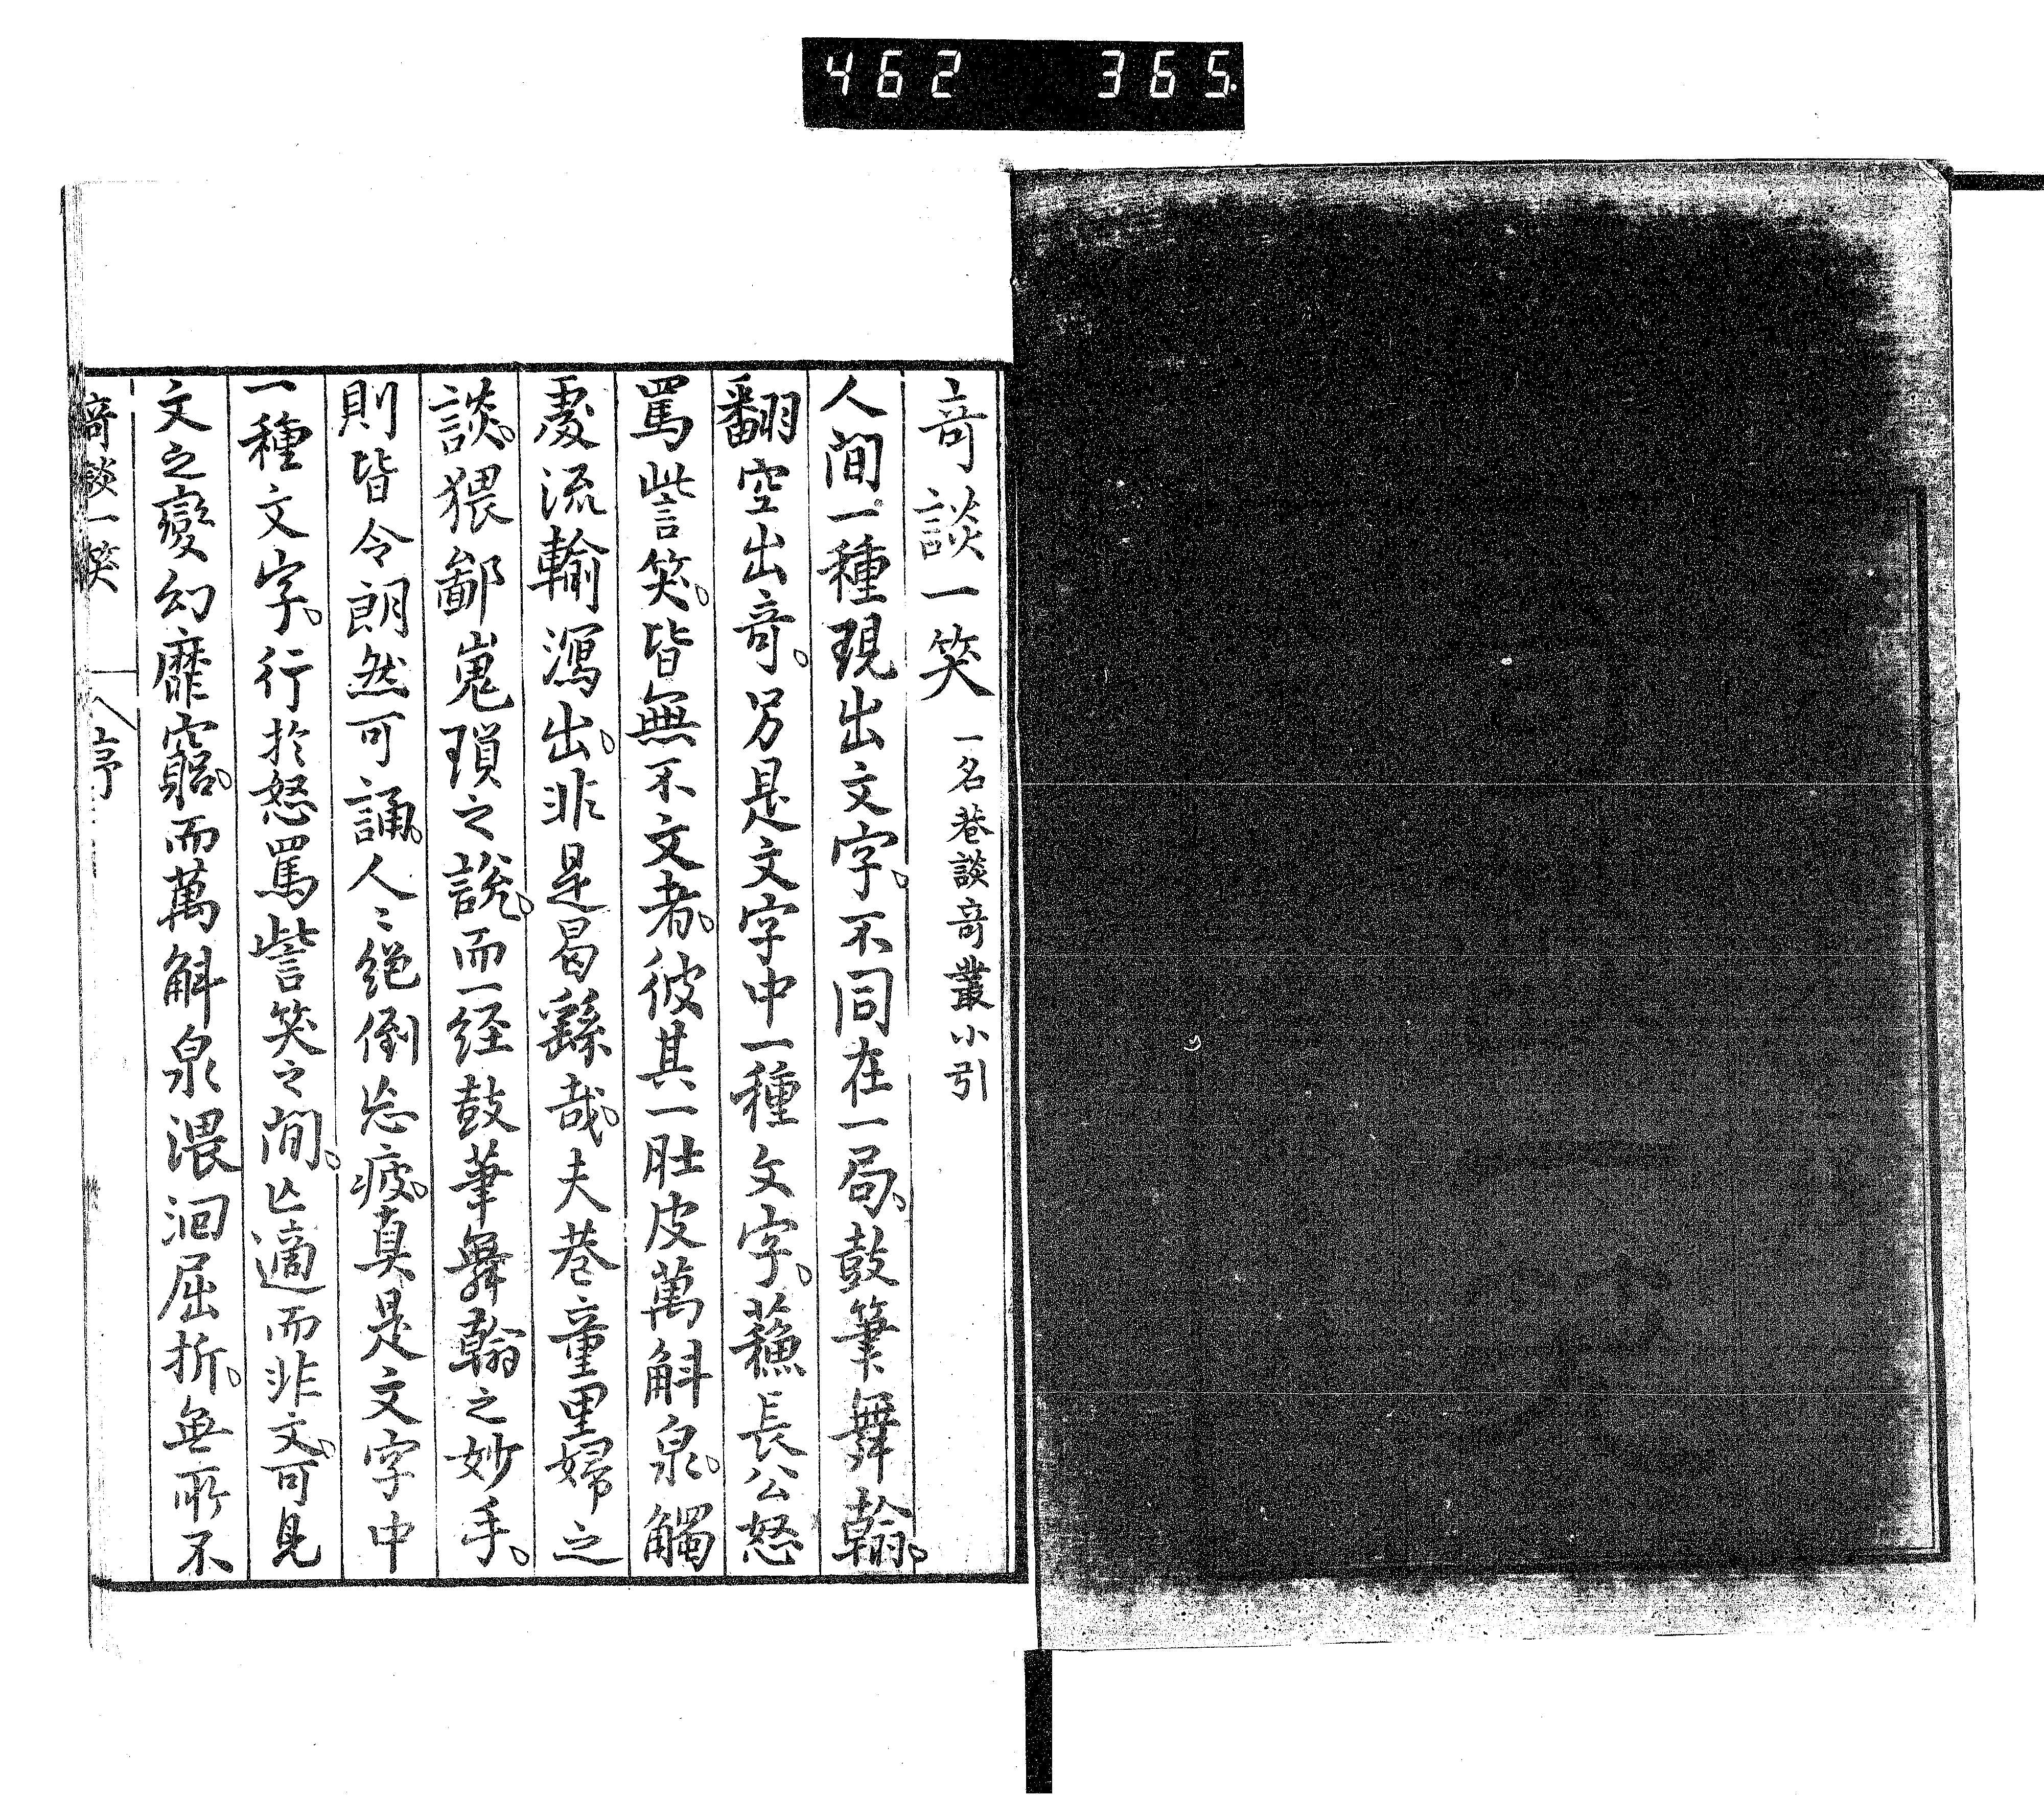 462 365
奇談一笑 一名巷談奇叢小引
人間一種現出文字。不同在一局。鼓筆舞翰。
翻空出奇。另是文字中一種文字。蘓長公怒
罵訾言笑。皆無不文者。彼其一肚皮萬斛泉。觸
處流輸瀉出。非是曷繇哉。夫巷童里婦之
談。猥鄙嵬瑣之說。而一経鼓筆舞翰之妙手。
則皆令朗然可誦。人〻絕倒忘疲。真是文字中
一種文字。行於怒罵訾言笑之間。亾適而非文。可見
文之變幻靡窮。而萬斛泉渨洄屈折。無所不
奇談一笑 序